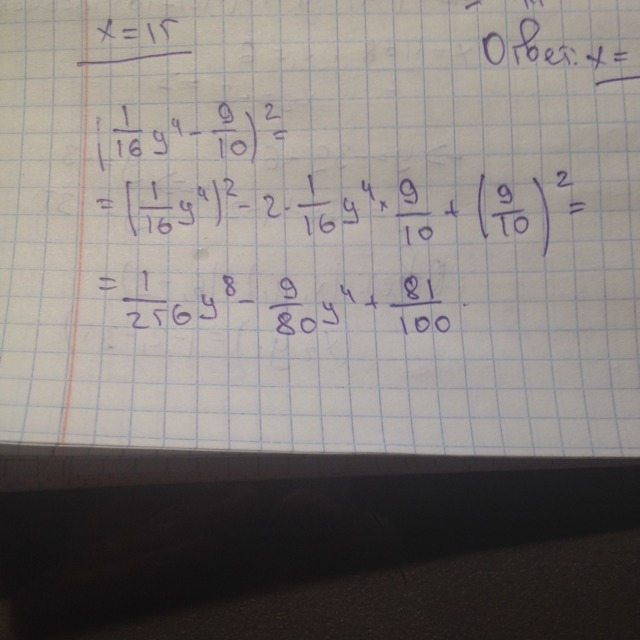 x = 15
Ответ: x =
(1/16 y⁴ - 9/10)² =
= (1/16 y⁴)² - 2 · 1/16 y⁴ · 9/10 + (9/10)² =
= 1/256 y⁸ - 9/80 y⁴ + 81/100 .